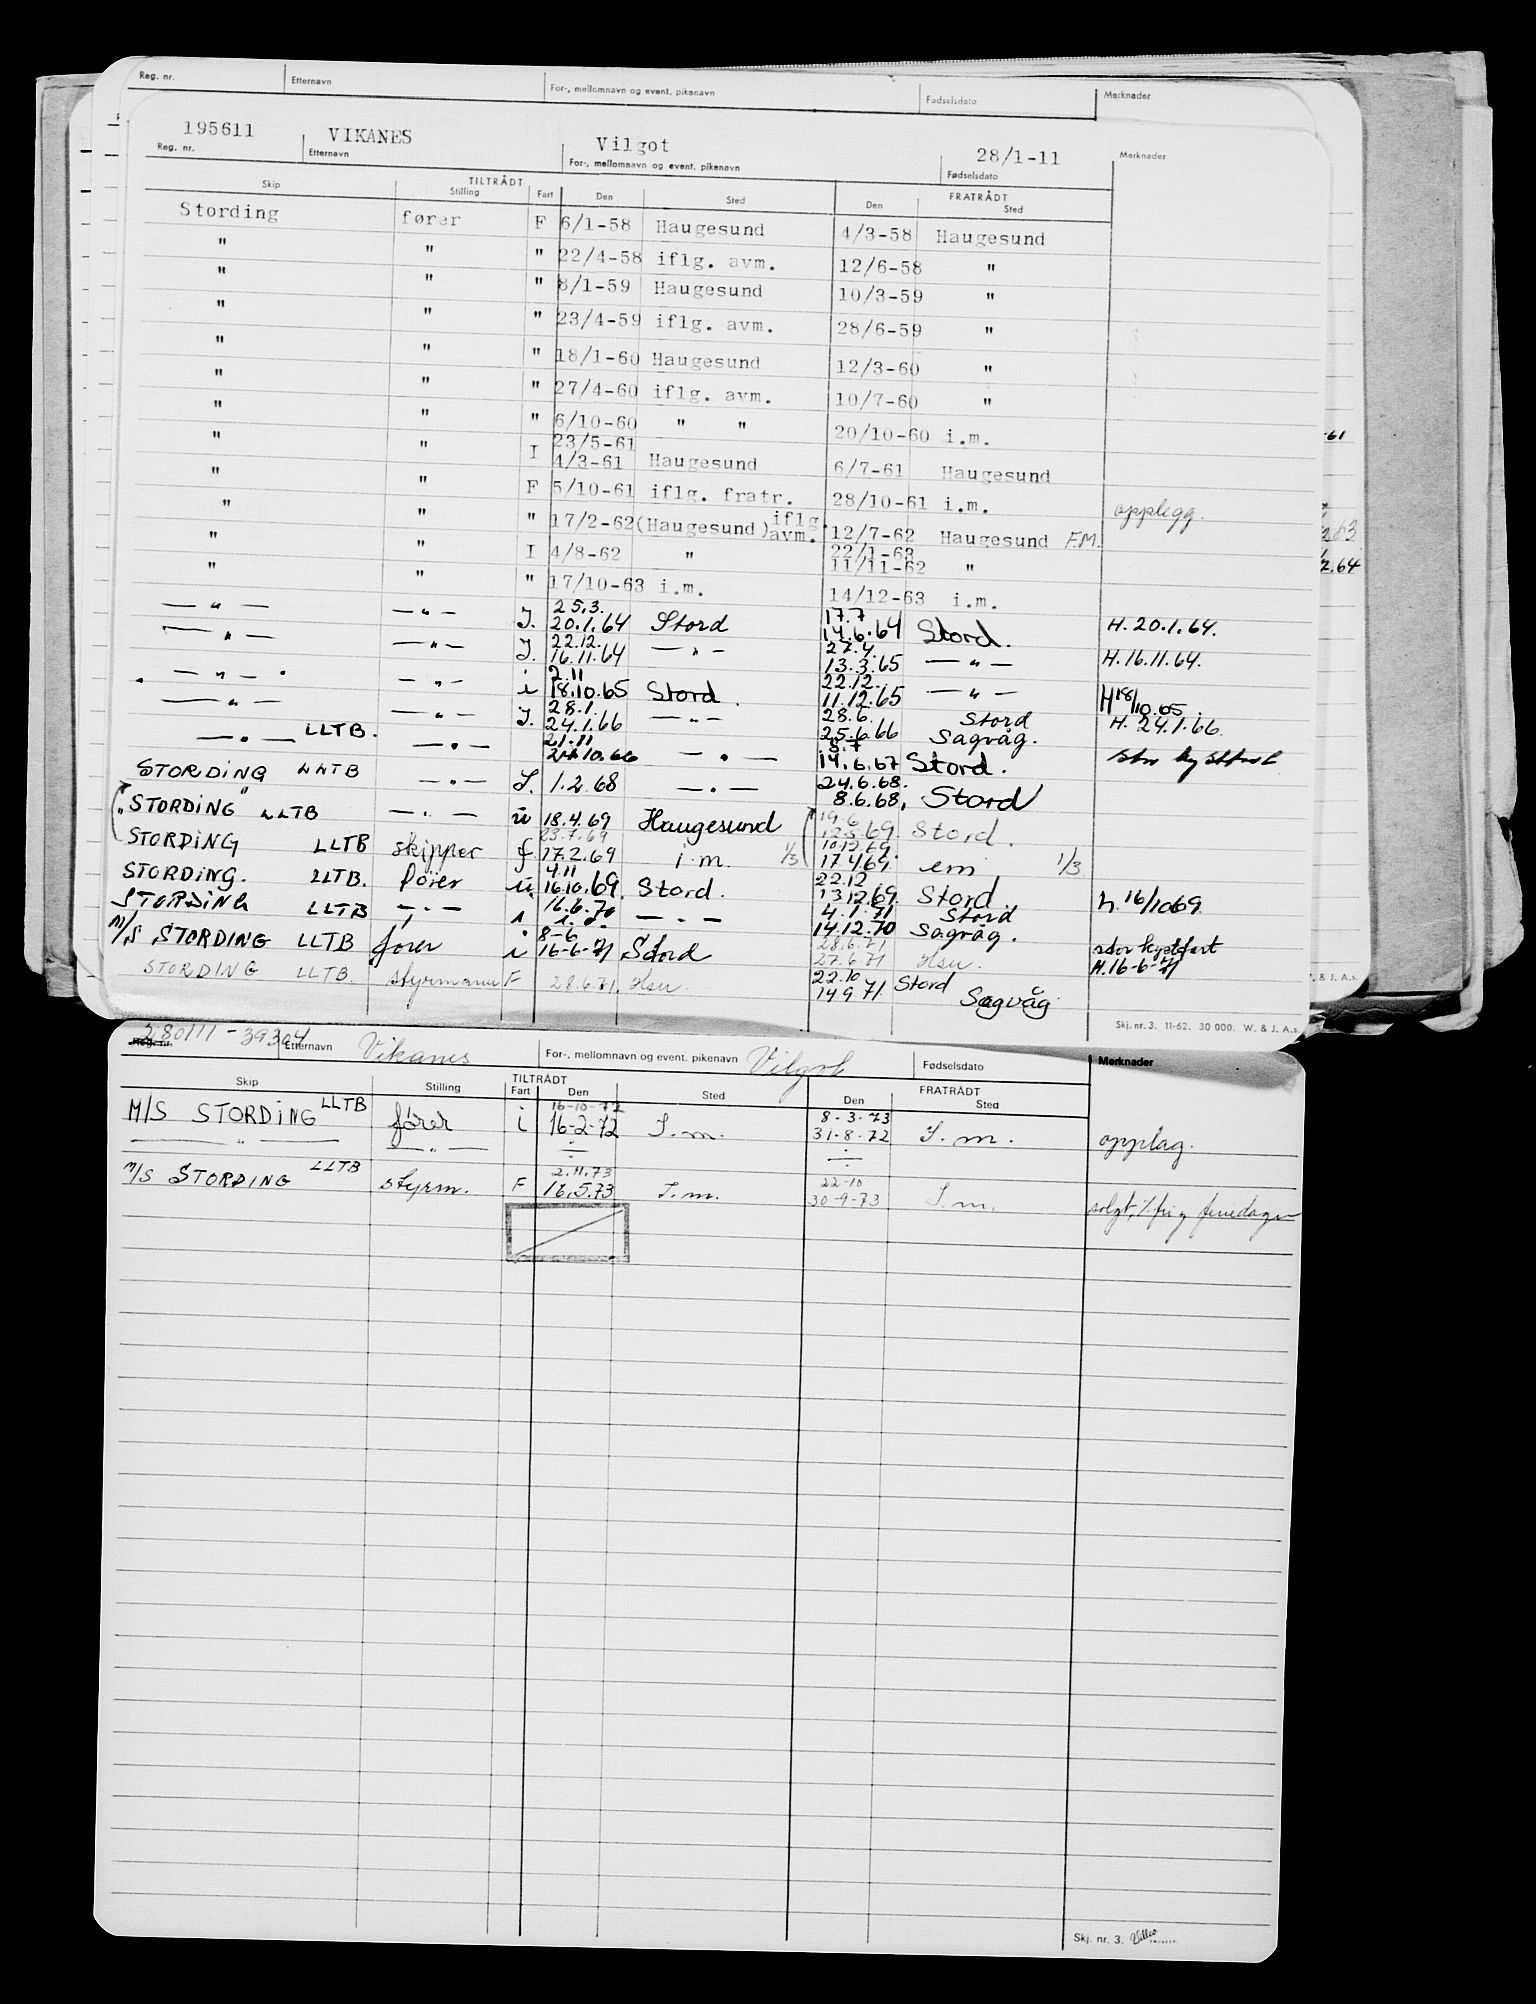 Reg. nr. Etternavn For-, mellomnavn og event. pikenavn Fødselsdato Merknader
195611 VIKANES Vilgot 28/1-11
Reg. nr. Etternavn For-, mellomnavn og event. pikenavn Fødselsdato Merknader
TILTRÅDT FRATRÅDT
Skip Stilling Fart Den Sted Den Sted
Stording fører F 6/1-58 Haugesund 4/3-58 Haugesund
" " " 22/4-58 iflg. avm. 12/6-58 "
" " " 8/1-59 Haugesund 10/3-59 "
" " " 23/4-59 iflg. avm. 28/6-59 "
" " " 18/1-60 Haugesund 12/3-60 "
" " " 27/4-60 iflg. avm. 10/7-60 "
" " " 6/10-60 " " 20/10-60 i.m.
23/5-61
" " I 4/3-61 Haugesund 6/7-61 Haugesund
" " F 5/10-61 iflg. fratr. 28/10-61 i.m. opplegg.
" " " 17/2-62 (Haugesund) iflg. avm. 12/7-62 Haugesund F.M.
22/1-63
" " I 4/8-62 " 11/11-62 "
" " " 17/10-63 i.m. 14/12-63 i.m.
25.3. 17.7
— " — — " — I. 20.1.64 Stord 14.6.64 Stord. H. 20.1.64.
22.12. 27.4
— " — — " — I. 16.11.64 — " — 13.3.65 — " — H. 16.11.64.
2.11 22.12.
— " — — " — i 18.10.65 Stord. 11.12.65 — " — H 18/10.65.
28.1. 28.6. Stord
— " — — " — I. 24.1.66 — " — 25.6.66 Sagvåg. H. 24.1.66.
21.11 8.7
— " — LLTB. — " — 10.66 — " — 14.6.67 Stord.
24.6.68.
STORDING LLTB — " — I. 1.2.68 — " — 8.6.68, Stord
19.6
"STORDING" LLTB — " — 18.4.69 Haugesund 12.5.69. Stord.
23.7.69 10.12.69
STORDING LLTB skipper f 17.2.69 i.m. 1/3 17.4.69. 1/3
4.11 22.12
STORDING. LLTB. fører 16.10.69. Stord. 13.12.69. Stord. h. 16/10 69
16.6.70 4.1.71 Stord
STORDING LLTB — " — i — " — 14.12.70 Sagvåg. stor kystfart
8-6 28.6.71
M/S STORDING LLTB fører i 16-6-71 Stord 27.6.71 Hsu. H. 16-6-71
22.10 Stord
STORDING LLTB. styrmann F 28.6.71. Hsu. 14 9.71 Sagvåg
Skj. nr. 3. 11-62. 30 000. W. & J. A.s.
280111 - 39304 Vikanes Vilgot
Reg. nr. Etternavn For-, mellomnavn og event. pikenavn Fødselsdato Merknader
TILTRÅDT FRATRÅDT
Skip Stilling Fart Den Sted Den Sted
16-10-72 8-3-73
M/S STORDING LLTB fører i 16-2-72 I.m. 31-8-72 I.m. opplag.
— " — — " —
2.11.73 22-10
M/S STORDING LLTB styrm. F 16.5.73 I.m. 30-9-73 I.m. solgt,
Skj. nr. 3.